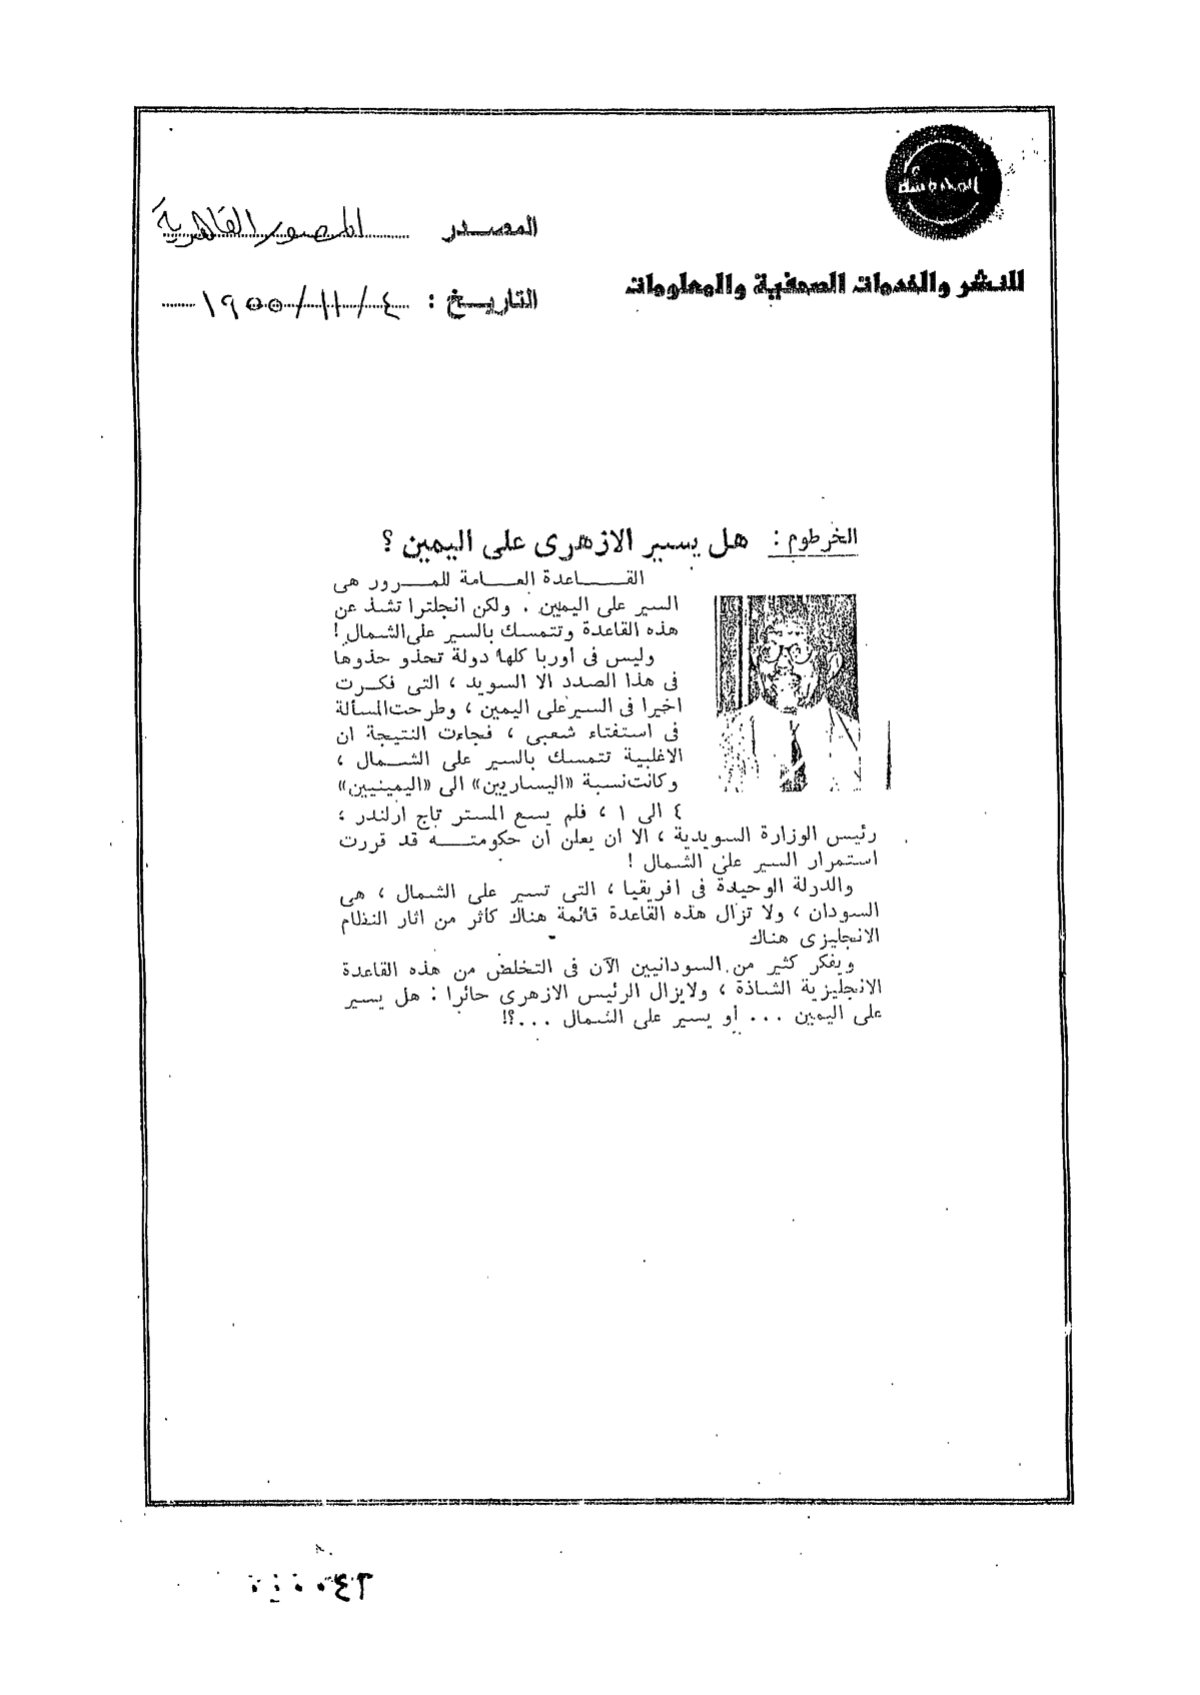 المصدر المصور القاهرية
للنشر والخدمات الصحفية والمعلومات
التاريخ : ٤/١١/١٩٥٥
الخرطوم : هل يسير الازهرى على اليمين ؟
القاعدة العامة للمرور هى
السير على اليمين . ولكن انجلترا تشذ عن
هذه القاعدة وتتمسك بالسير على الشمال !
وليس فى أوربا كلها دولة تحذو حذوها
فى هذا الصدد الا السويد ، التى فكرت
اخيرا فى السير على اليمين ، وطرحت المسألة
فى استفتاء شعبى ، فجاءت النتيجة ان
الاغلبية تتمسك بالسير على الشمال ،
وكانت نسبة «اليساريين» الى «اليمينيين»
٤ الى ١ ، فلم يسع المستر تاج ارلندر ،
رئيس الوزارة السويدية ، الا ان يعلن ان حكومته قد قررت
استمرار السير على الشمال !
والدولة الوحيدة فى افريقيا ، التى تسير على الشمال ، هى
السودان ، ولا تزال هذه القاعدة قائمة هناك كأثر من اثار النظام
الانجليزى هناك
ويفكر كثير من السودانيين الآن فى التخلص من هذه القاعدة
الانجليزية الشاذة ، ولايزال الرئيس الازهرى حائرا : هل يسير
على اليمين ... أو يسير على الشمال ...؟!